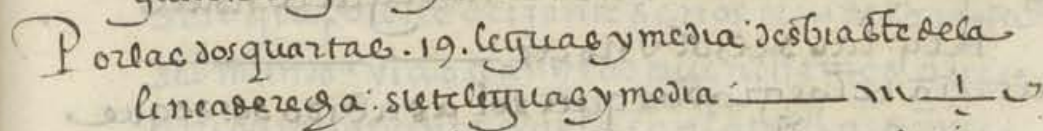 Por las dos quartas . 19. leguas y media desbiaste de la
linea derecha : siete leguas y media